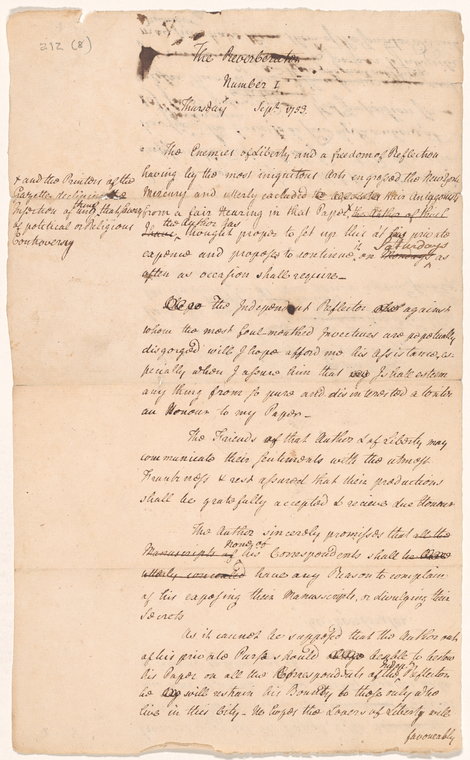 212 (8)
The Reverberator
Number I
Thursday Sepr. 1753.
The Enemies of Liberty and a freedom of Reflection
having by the most iniquitous Arts engrossed the New York
Mercury and utterly excluded their Antagonists
from a fair Hearing in that Paper,
& and the Printers of the
Gazette declining the
Insertion of any thing
of political or Religious
Controversy
the Author has
thought proper to set up this at his private
expence and proposes to continue it on Saturdays as
often as occasion shall require—
The Independent Reflector against
whom the most foul-mouthed Invectives are perpetually
disgorged will I hope afford me his Assistance, es
pecially when I assure him that I shall esteem
any thing from so pure and disinterested a
an Honour to my Paper—
The Friends of that Author & of Liberty may
communicate their sentiments with the utmost
Frankness & rest assured that their productions
shall be gratefully accepted & recieve due Honour
The Author sincerely promisses that all the
Manuscripts of none of his Correspondents shall be
utterly concealed have any Reason to complain
of his exposing their Manuscripts, or divulging their
Secrets
As it cannot be supposed that the Author out
of his private Purse should be able to bestow
his Paper on all the Correspondents of the Indepdt. Reflector
he will restrain his Bounty to those only who
live in this City— He hopes the Lovers of Liberty will
favourably